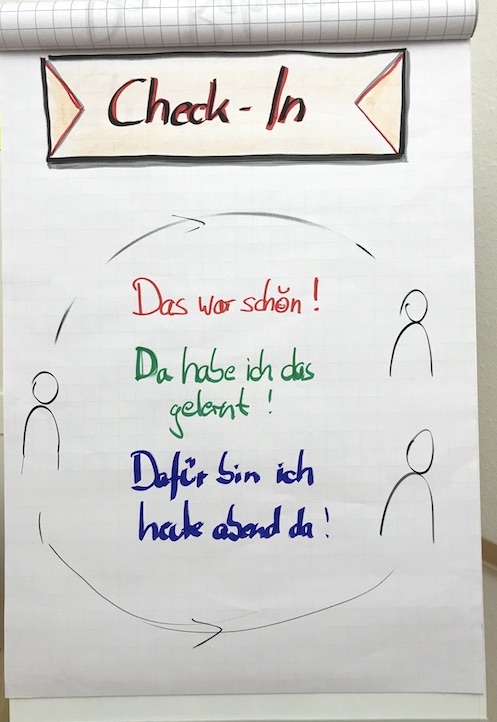 Check-In
Das war schön!
Da habe ich das
gelernt!
Dafür bin ich
heute abend da!